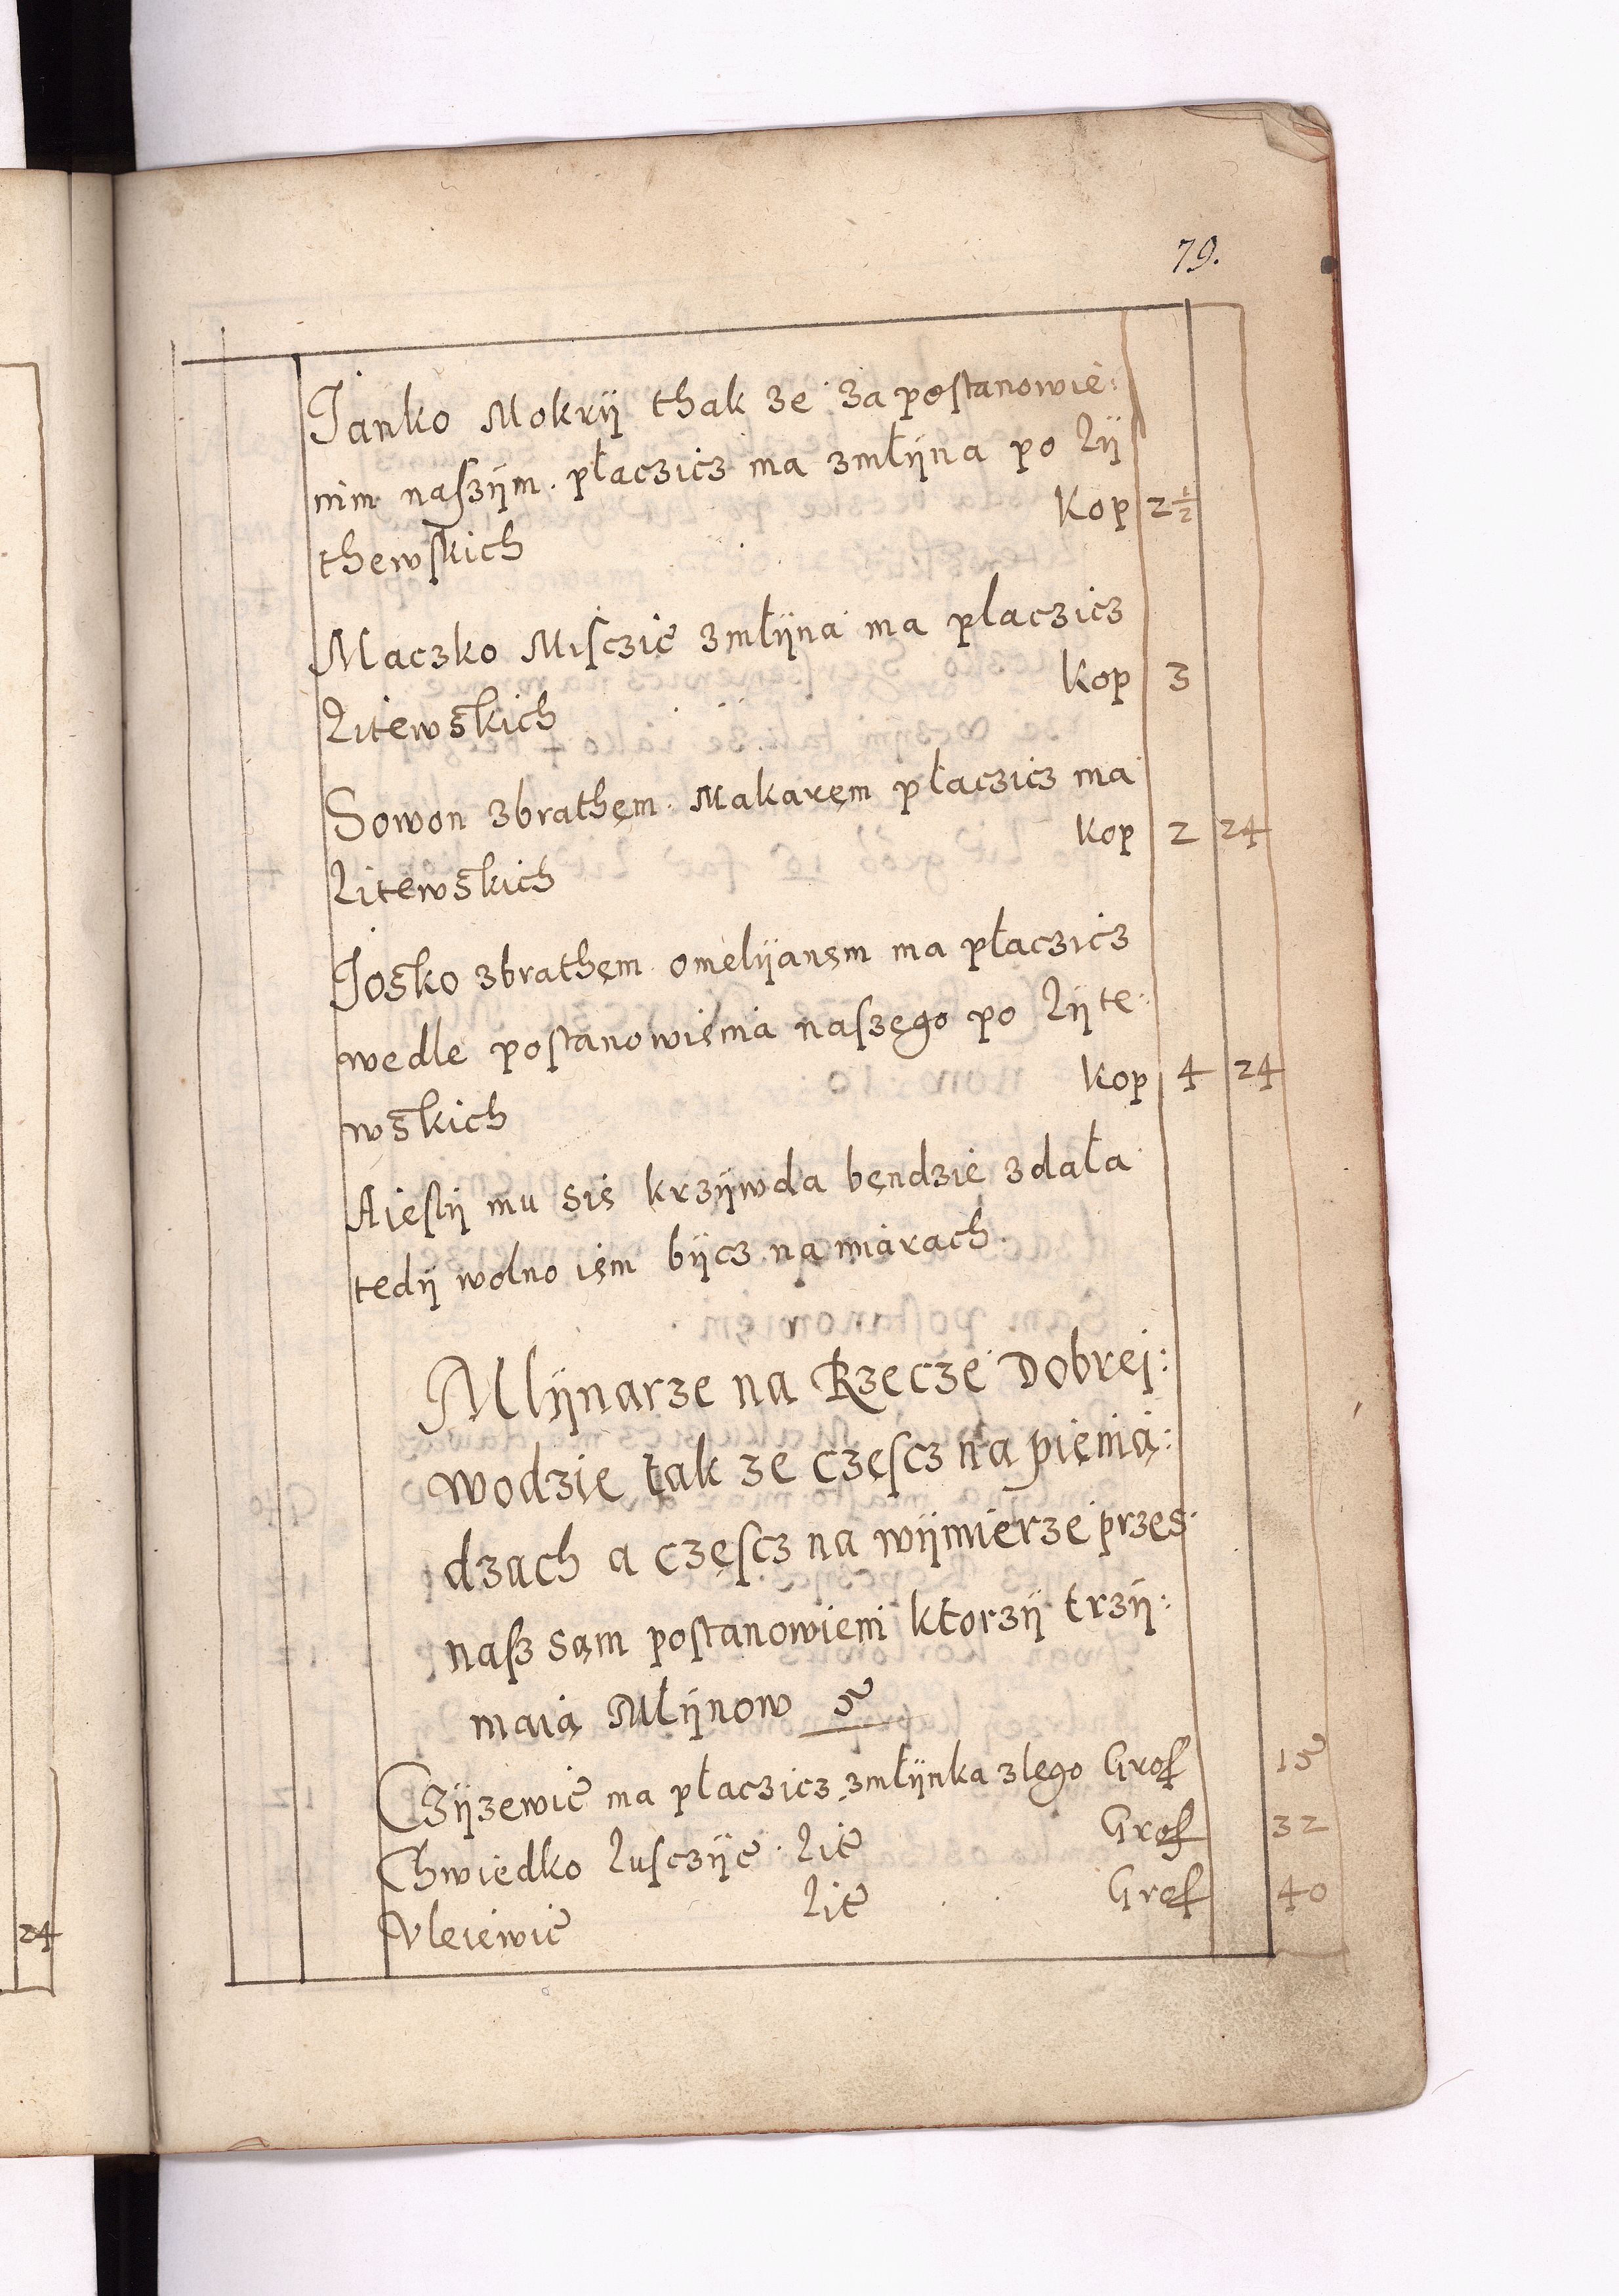 79.
Janko Mokrÿ thak ze za postanowie:
nim naszÿm. płaczicz ma zmłÿna po Lÿ
thewskich Kop 2½
Maczko Misczic zmłÿna ma płaczicz
Litewskich Kop 3
Sowon zbrathęm. Makaręm płaczicz ma
Litewskich Kop 2 24
Josko zbrathęm omelÿanęm ma płaczicz
wedle postanowienia naszęgo po Lÿte:
wskich Kop 4 24
A iestÿ mu się krzÿwda będzie zdała
tedÿ wolno iem bÿcz na miarach.
Mlÿnarze na Rzecze Dobrej:
wodzie tak ze częscz na pienią:
dzach a częscz na wÿmierze przes
nasz sąm postanowieni ktorzÿ trzÿ:
maią Młÿnow 5
Czÿzewic ma płaczicz zmłÿnka zlęgo Grosz 15
Chwiedko Lusczÿc. Lit Grosz 32
Vleiewic Lit Grosz 40
24